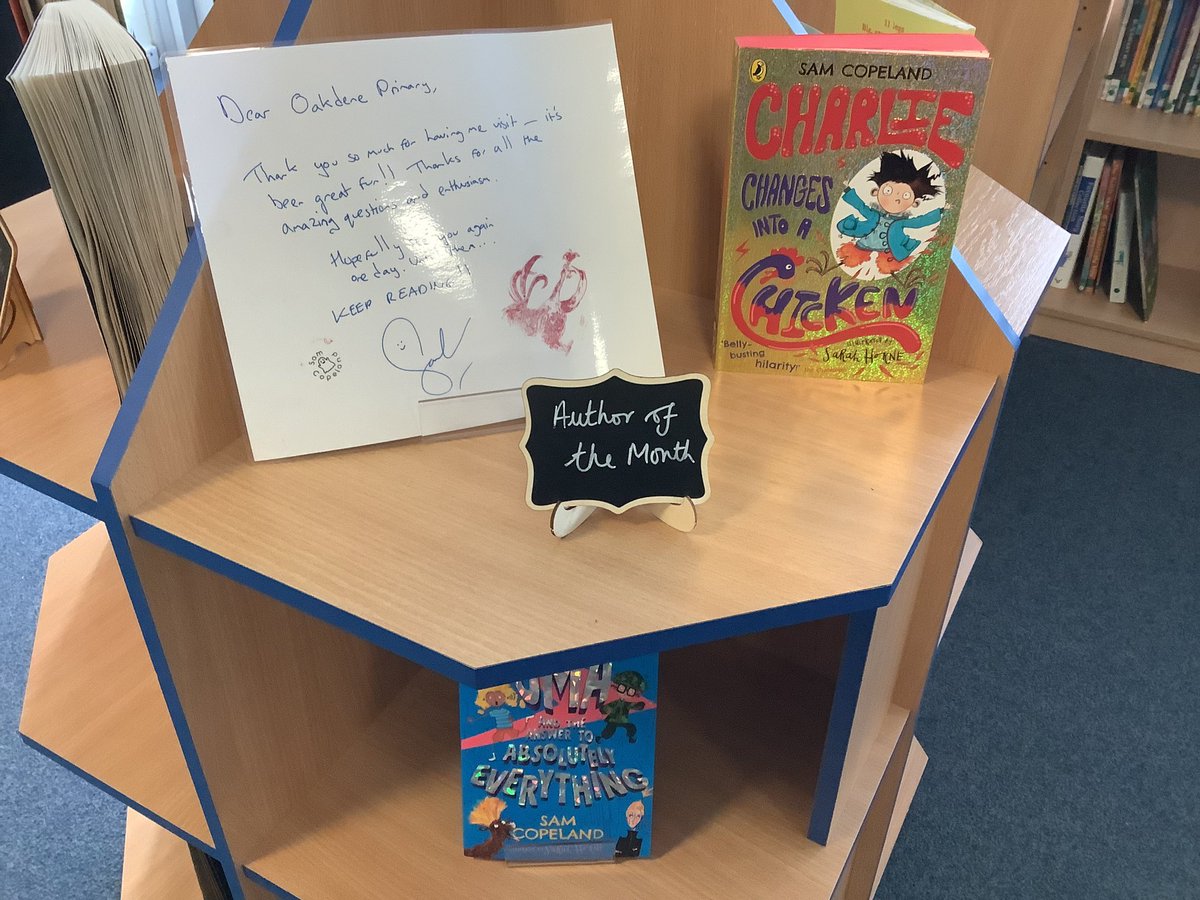 Dear Oakdene Primary,
Thank you so much for having me visit – it's
been great fun!! Thanks for all the
amazing questions and enthusiasm.
Hopefully see you again
one day. Until then...
KEEP READING!!
Sam
Sam Copeland
SAM COPELAND
CHARLIE
CHANGES
INTO A
CHICKEN
'Belly-
busting
hilarity!'
ILLUSTRATED BY
SARAH HORNE
Author of
the Month
UMA
AND THE
ANSWER TO
ABSOLUTELY
EVERYTHING
SAM
COPELAND